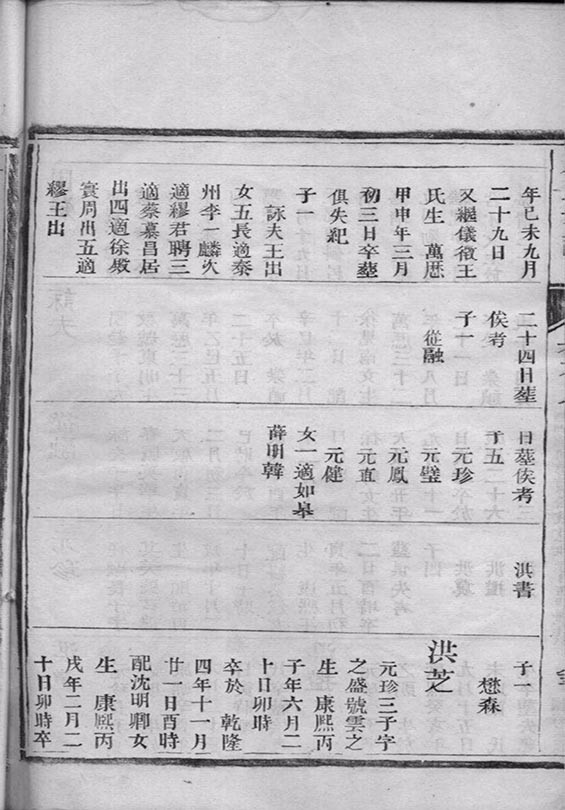 年己未九月
二十九日
又繼儀徵王
氏生 萬厯
甲申年三月
初三日卒塟
俱失紀
子一
詠夫王出
女五長適泰
州李一麟次
適繆君聘三
適蔡慕昌居
出四適徐
實周出五適
繆王出
二十四日塟
俟考
子一
從融
日塟俟考
子五
元珍
元璧
元鳳
元直
元健
女一適如皋
薛明韓
洪書
子一
懋森
洪芝
元珍三子字
之盛號雲之
生 康熙丙
子年六月二
十日卯時
卒於 乾隆
四年十一月
廿一日酉時
配沈明卿女
生 康熙丙
戌年二月二
十日卯時卒